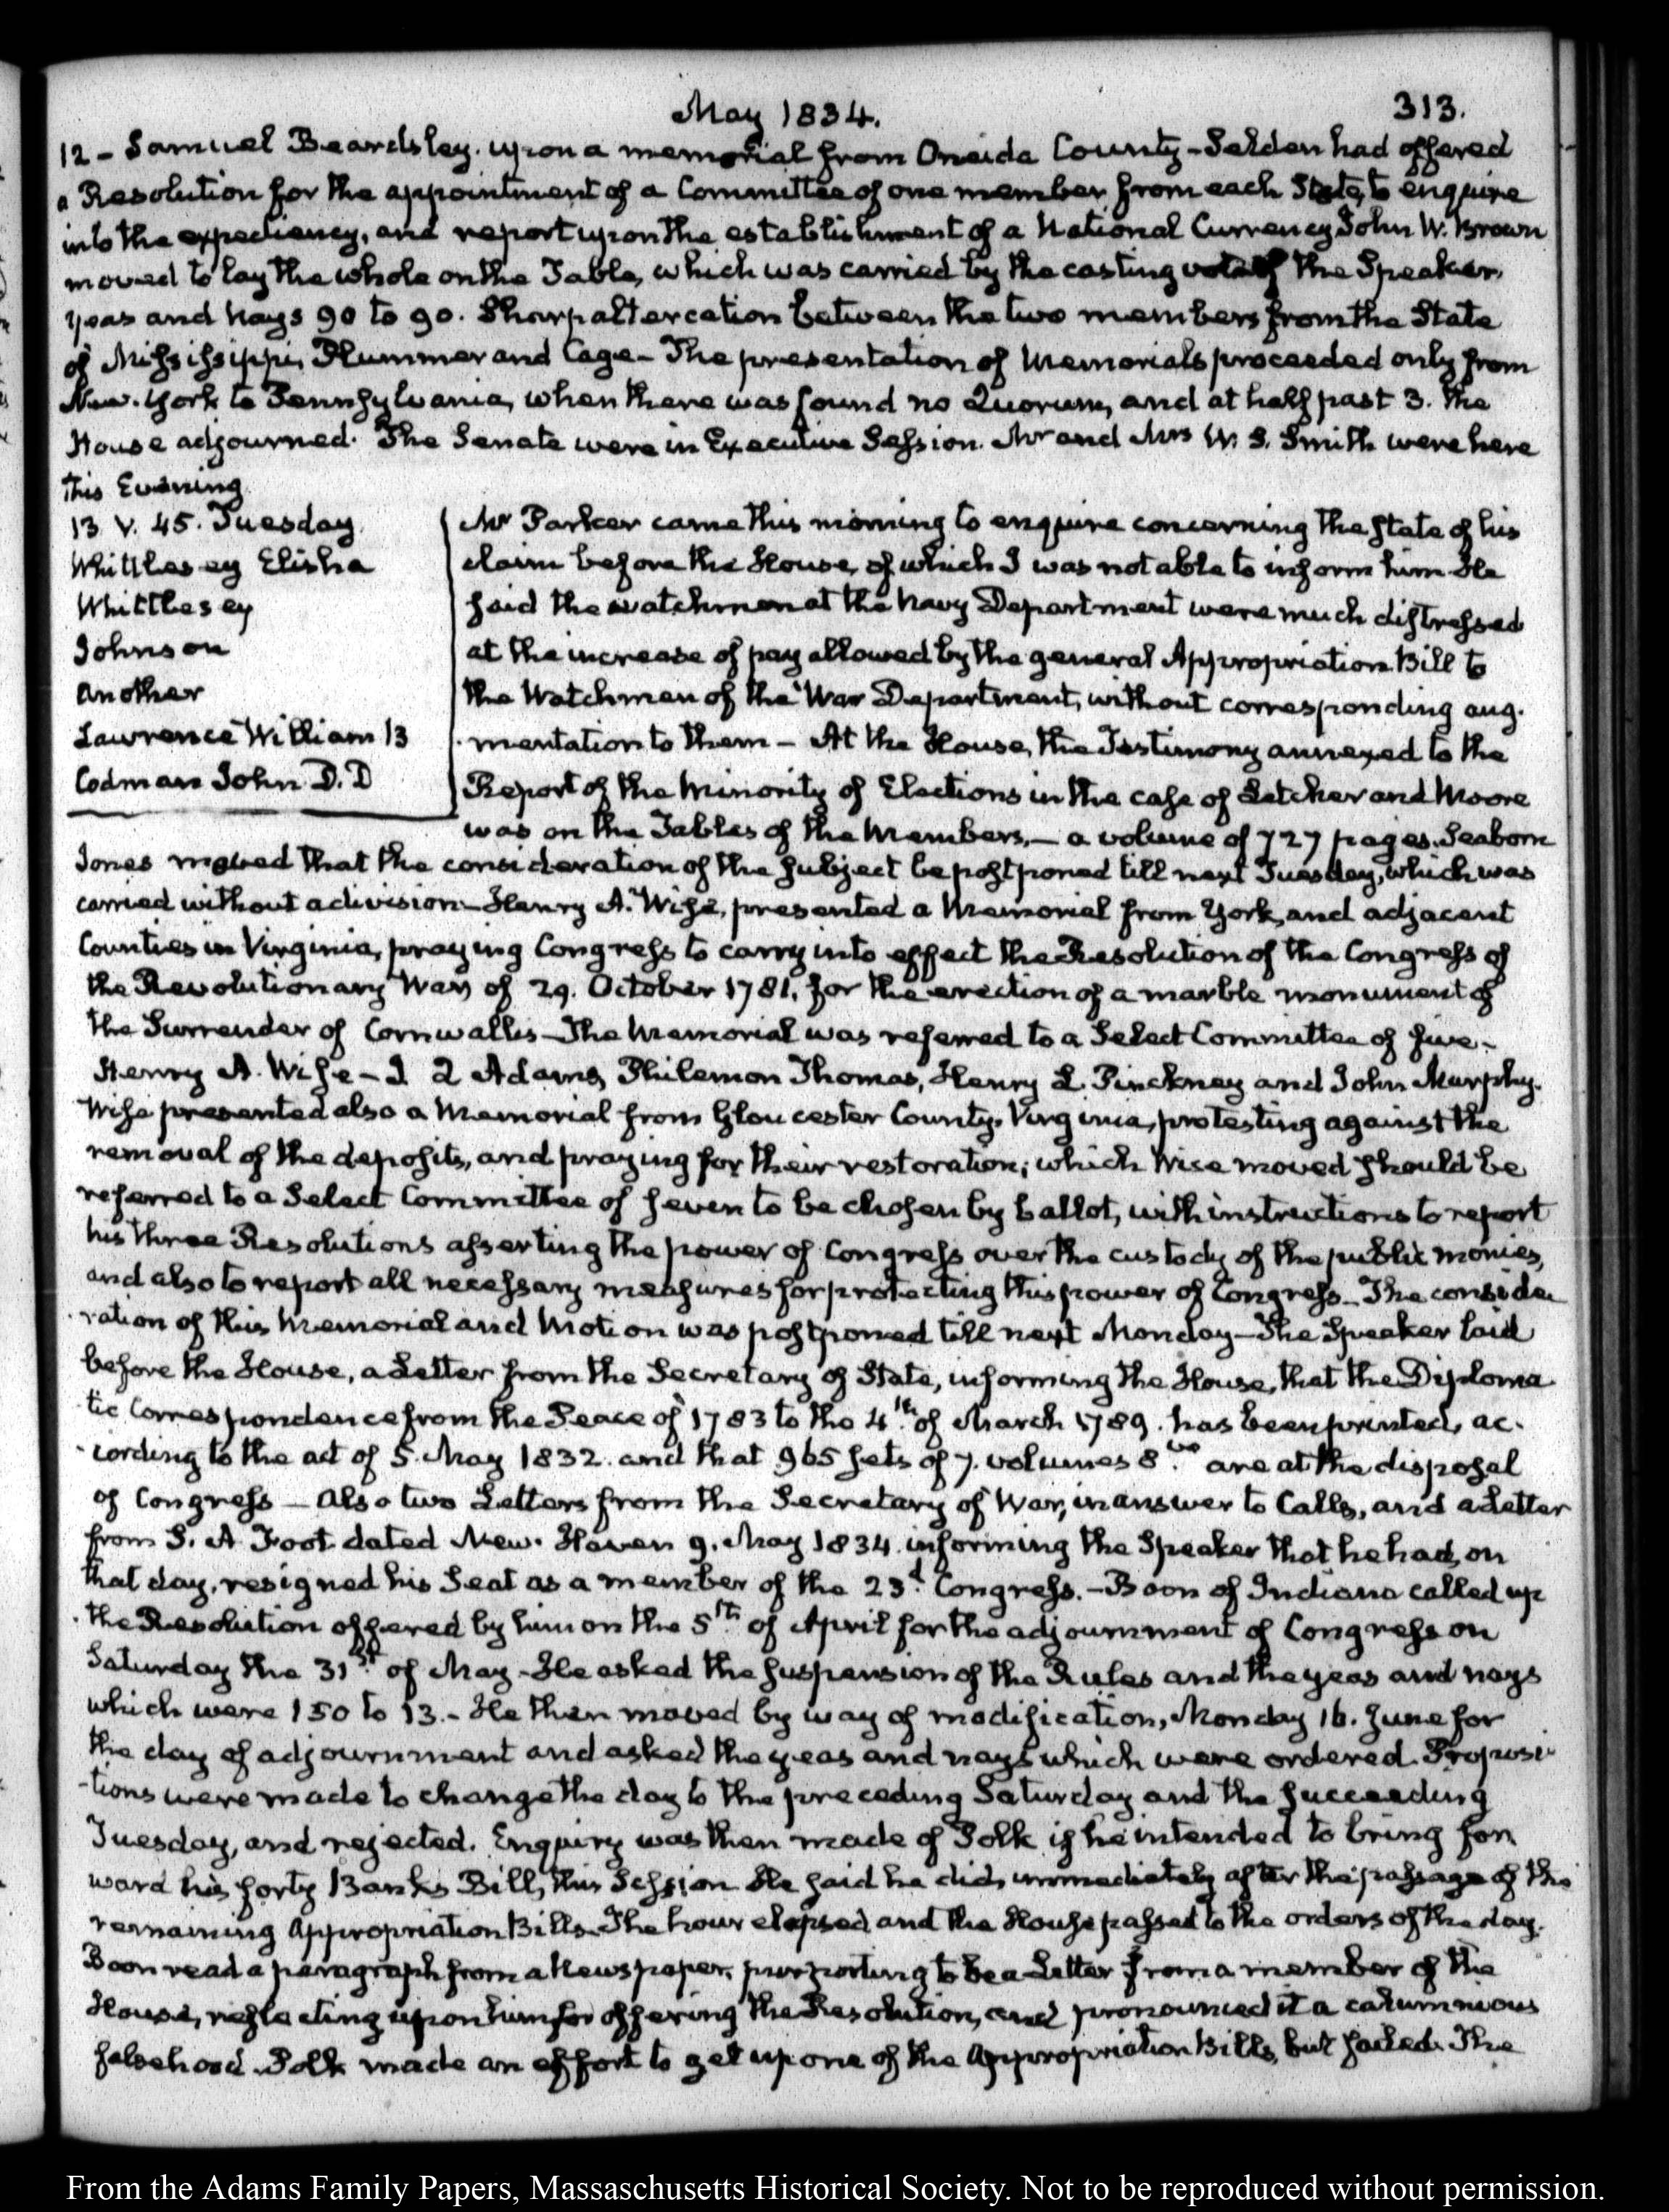 May 1834.
313.
12 - Samuel Beardsley. upon a memorial from Oneida County - Selden had offered
a Resolution for the appointment of a Committee of one member from each State, to enquire
into the expediency, and report upon the establishment of a National Currency John W. Brown
moved to lay the whole on the Table, which was carried by the casting vote of the Speaker,
yeas and nays 90 to 90. Sharp altercation between the two members from the State
of Mississippi, Plummer and Cage - The presentation of Memorials proceeded only from
New-York to Pennsylvania, when there was found no Quorum, and at half past 3. the
House adjourned. The Senate were in Executive Session. Mr and Mrs W. S. Smith were here
this Evening
13 V. 45. Tuesday.
Whittlesey Elisha
Whittlesey
Johnson
another
Lawrence William 13
Codman John D.D
Mr Parker came this morning to enquire concerning the state of his
claim before the House, of which I was not able to inform him He
said the watchmen at the Navy Department were much distressed
at the increase of pay allowed by the general Appropriation Bill to
the Watchmen of the War Department, without corresponding aug-
-mentation to them - At the House, the Testimony annexed to the
Report of the Minority of Elections in the case of Letcher and Moore
was on the Tables of the Members, - a volume of 727 pages. Seaborn
Jones moved that the consideration of the subject be postponed till next Tuesday, which was
carried without a division - Henry A. Wise, presented a Memorial from York, and adjacent
Counties in Virginia, praying Congress to carry into effect the Resolution of the Congress of
the Revolutionary War, of 29. October 1781. for the erection of a marble monument of
the Surrender of Cornwallis - The Memorial was referred to a Select Committee of five -
Henry A. Wise - J Q Adams, Philemon Thomas, Henry L. Pinckney and John Murphy.
Wise presented also a Memorial from Gloucester County, Virginia, protesting against the
removal of the deposits, and praying for their restoration; which Wise moved should be
referred to a Select Committee of seven to be chosen by ballot, with instructions to report
his three Resolutions asserting the power of Congress over the custody of the public monies,
and also to report all necessary measures for protecting this power of Congress - The conside
-ration of this Memorial and Motion was postponed till next Monday - The Speaker laid
before the House, a Letter from the Secretary of State, informing the House, that the Diploma
-tic Correspondence from the Peace of 1783 to the 4th of March 1789. has been printed, ac-
-cording to the act of 5. May 1832. and that 965 sets of 7. volumes 8.vo are at the disposal
of Congress - Also two Letters from the Secretary of War, in answer to Calls, and a Letter
from S. A Foot dated New-Haven 9. May 1834. informing the Speaker that he had, on
that day, resigned his Seat as a member of the 23d Congress. - Boon of Indiana called up
the Resolution offered by him on the 5th of April for the adjournment of Congress on
Saturday the 31st of May - He asked the suspension of the Rules and the yeas and nays
which were 150 to 13. - He then moved by way of modification, Monday 16. June for
the day of adjournment and asked the yeas and nays which were ordered. Proposi
-tions were made to change the day to the preceding Saturday and the succeeding
Tuesday, and rejected. Enquiry was then made of Polk if he intended to bring for
ward his forty Banks Bill, this Session He said he did, immediately after the passage of the
remaining Appropriation Bills. The hour elapsed and the House passed to the orders of the day.
Boon read a paragraph from a Newspaper, purporting to be a Letter from a member of the
House, reflecting upon him for offering the Resolution, and pronounced it a calumnious
falsehood. Polk made an effort to get up one of the Appropriation Bills, but failed. The
From the Adams Family Papers, Massachusetts Historical Society. Not to be reproduced without permission.